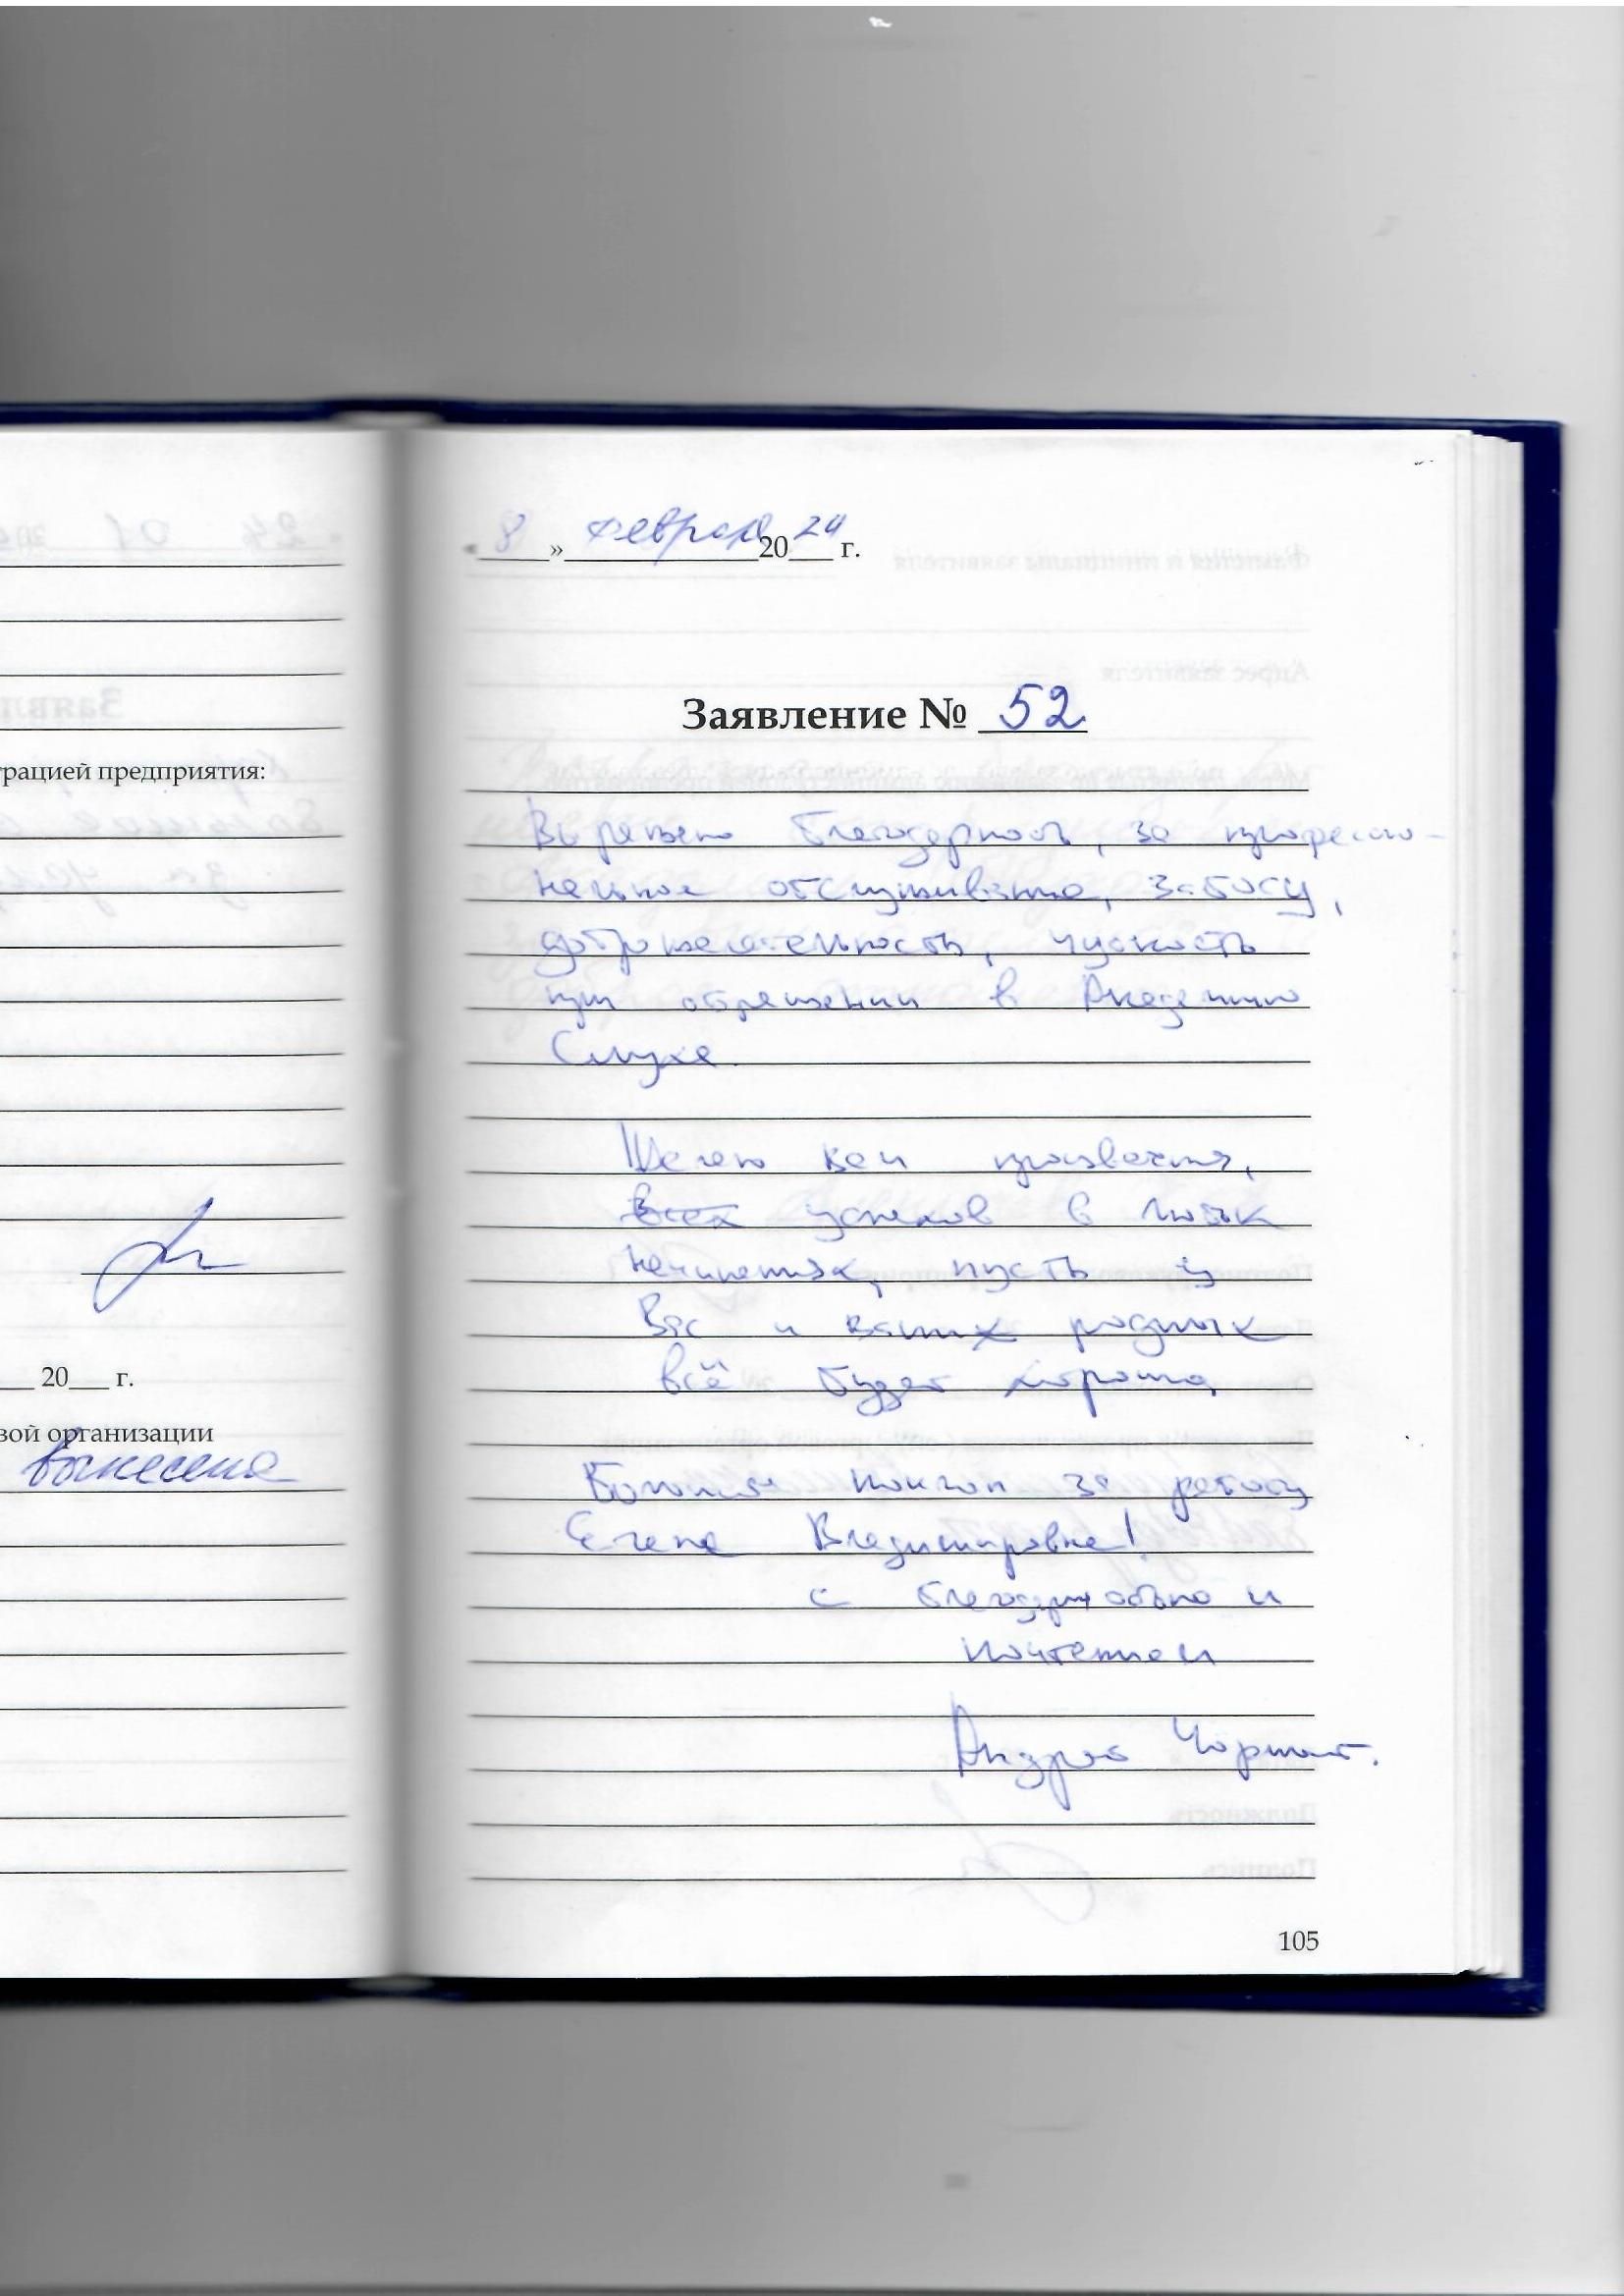 грацией предприятия:
20___ г.
вой организации
вынесена
« 8 » февраля 2024 г.
Заявление № 52
Выражаю благодарность, за професси-
нальное обслуживание, заботу,
доброжелательность, чуткость
при обращении в Академию
Слуха.
Желаю вам процветания,
успехов в любых
начинаниях, пусть у
Вас и ваших родных
всё будет хорошо,
Большой поклон за работу
Елене Владимировне!
с благодарностью и
почтением
Андрей
105